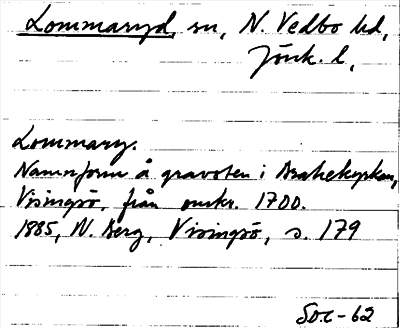 Lommaryd, sn, N. Vedbo hd,
Jönk. l.
Lommary.
Namnform å gravsten i Brahekyrkan,
Visingsö, från omkr. 1700.
1885, N. Berg, Visingsö, s. 179
Soc-62